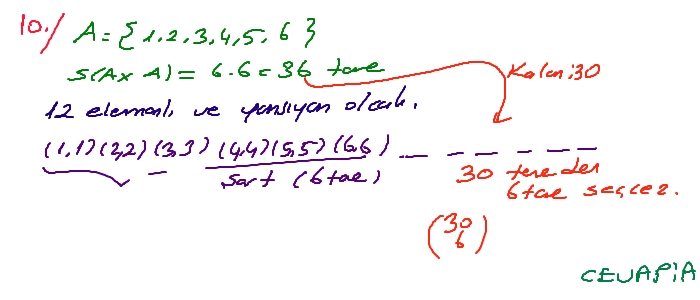 10./ A = {1,2,3,4,5,6}
s(A x A) = 6.6 = 36 tane
Kalan: 30
12 elemanlı ve yansıyan olcak.
(1,1)(2,2)(3,3)(4,4)(5,5)(6,6) _ _ _ _ _ _
Şart (6 tane)
30 taneden
6 tane seçcez.
(30
6)
CEVAP: A